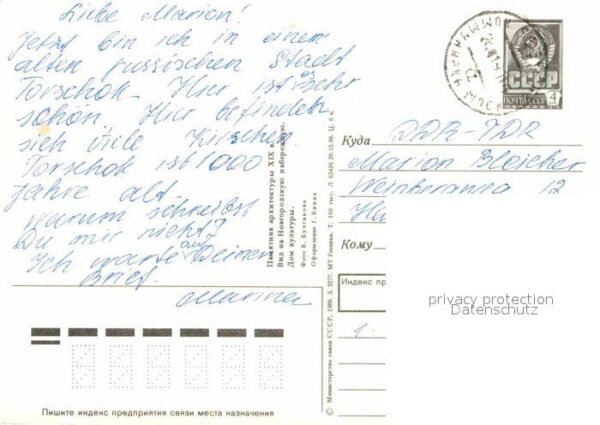 Liebe Marion!
Jetzt bin ich in einem
alten russischen Stadt
Torschok. Hier ist es sehr
schön. Hier befinden
sich viele Kirschen.
Torschok ist 1000
Jahre alt.
Warum schreibst
Du mir nicht?
Ich warte auf Deinen
Brief.
Marina
Памятник архитектуры XIX в.
Вид на Новгородскую набережную.
Дом культуры.
Фото В. Булгакова
Оформление Г. Бжина
© Министерство связи СССР, 1989. З. 2277. МТ Гознака. Т. 100 тыс. Л 63426 20.12.88. Ц. 6 к.
СССР
ПОЧТА СССР
4
Куда DDR-ГДР
Marion Bleicher
12
Кому
Индекс пр
privacy protection
Datenschutz
Пишите индекс предприятия связи места назначения